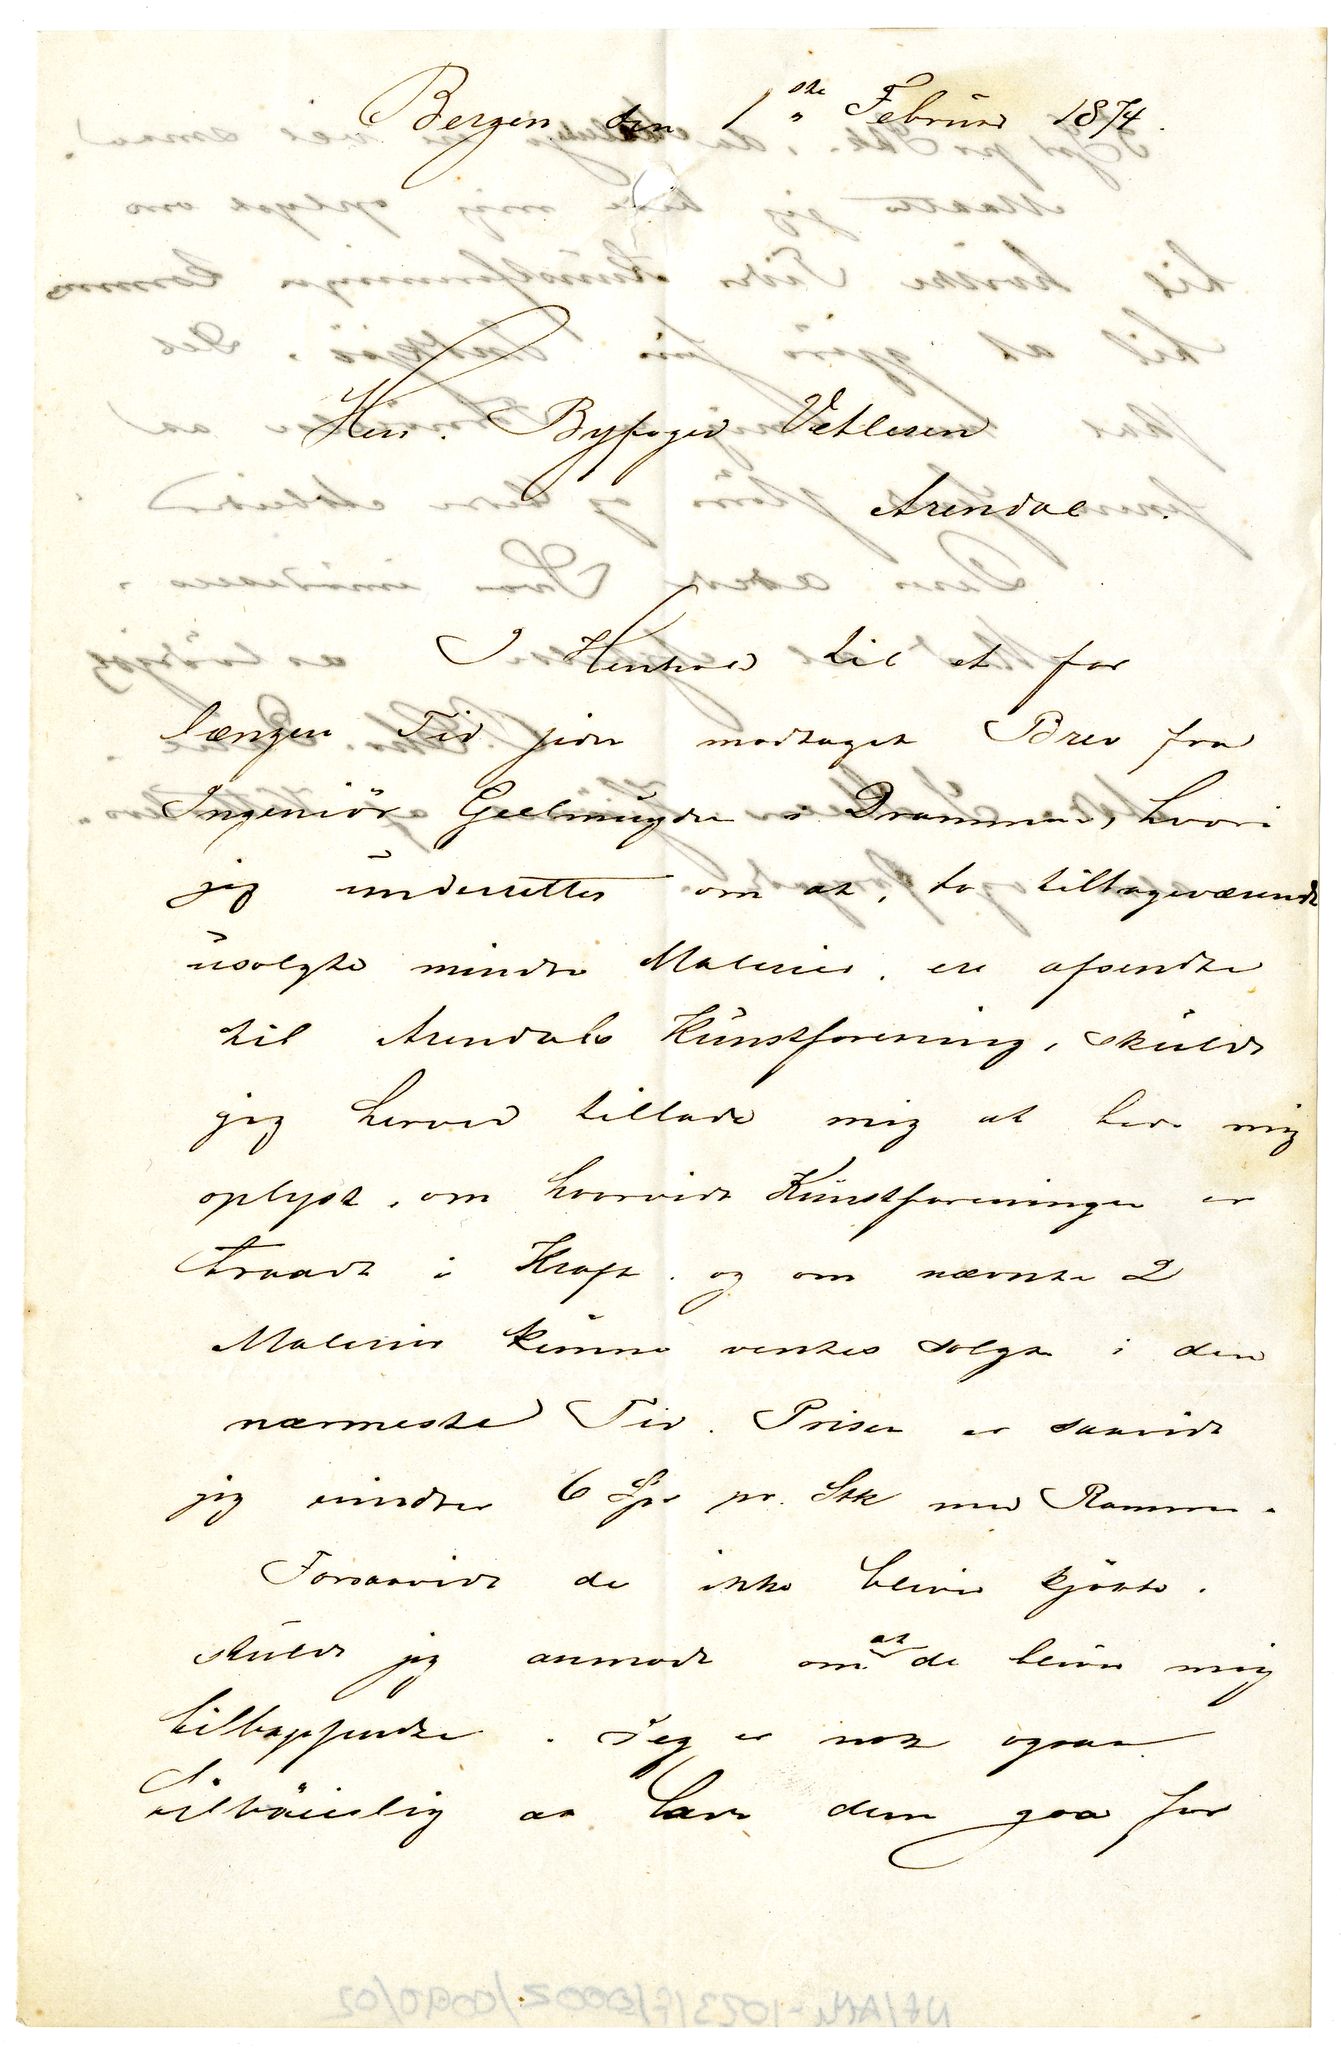 Bergen den 1ste Februar 1874.
Herr. Byfoged Vetlesen
Arendal.
I Henhold til et for
længere Tid siden modtaget Brev fra
Ingeniör Geelmuyden i Drammen, hvori
jeg underrettes om at, to tilbageværende
usolgte mindre Malerier, ere afsendte
til Arendals Kunstforening, skulde
jeg herved tillade mig at bede mig
oplyst, om hvorvidt Kunstforeningen er
traadt i Kraft. og om nævnte 2
Malerier kunne ventes solgte i den
nærmeste Tid. Prisen er saavidt
jeg erindrer 6 Spd pr. Stk med Ramme.
Forsaavidt de ikke bliver kjöbte.
skulde jeg anmode om at de bliver mig
tilbagesendte. Jeg er nok ogsaa
tilböielig at lade dem gaa for